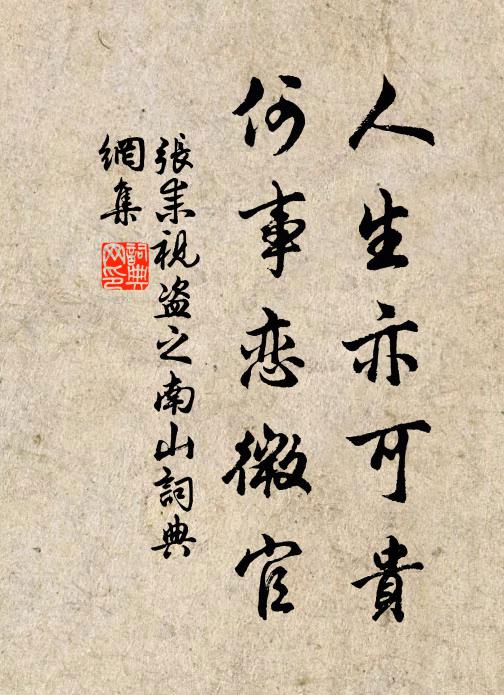 人生亦可貴
何事恋微官
張耒視盗之南山詞典
網集
詞典
网印